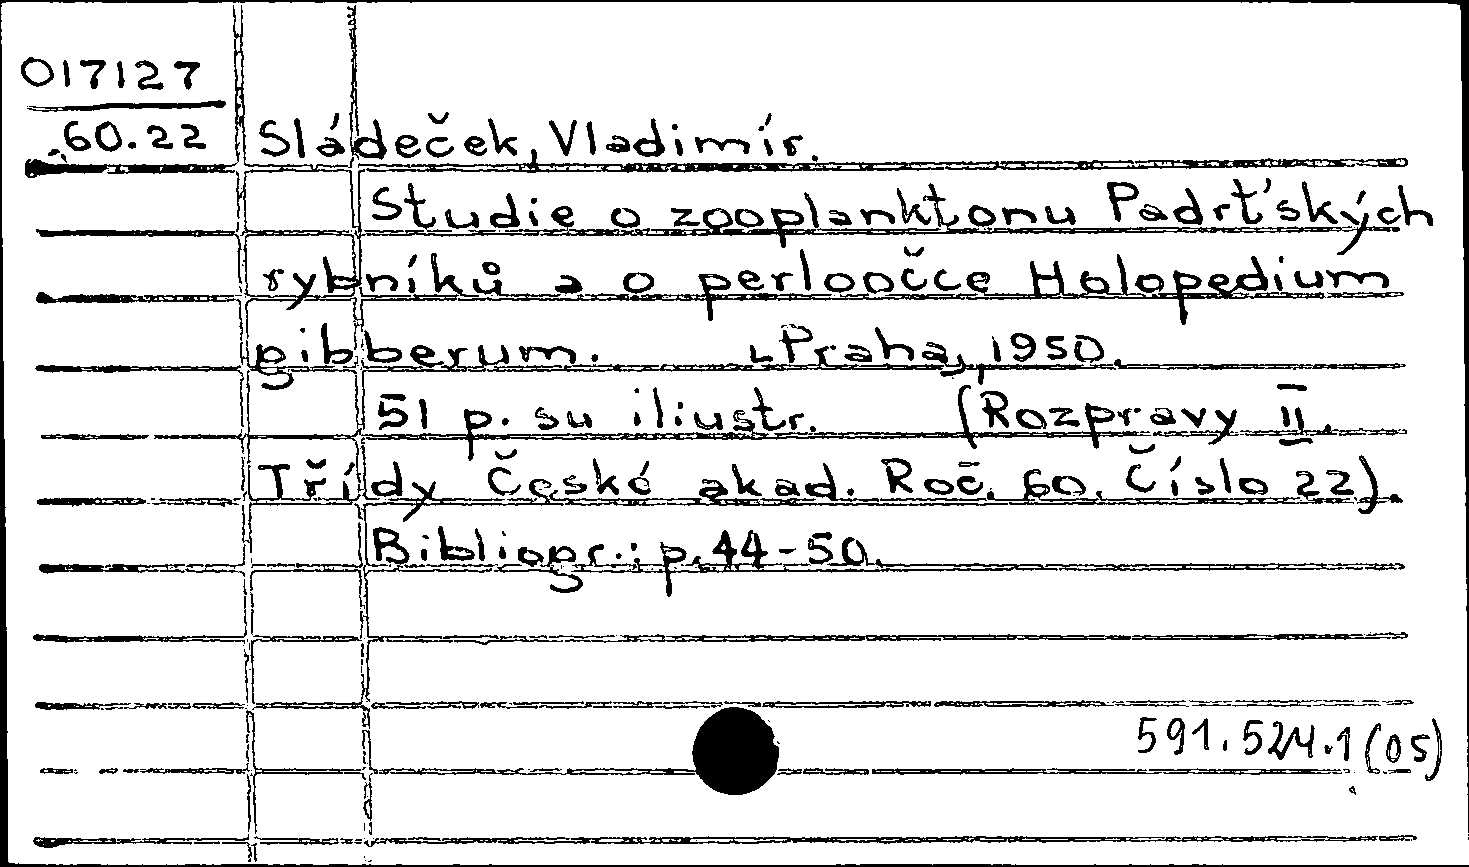 017127
60.22 Sládeček, Vladimír.
Studie o zooplanktonu Padrt'ských
rybníků a o perloočce Holopedium
gibberum. Praha, 1950.
51 p. su iliustr. (Rozpravy II.
Třídy České akad. Roč. 60. Číslo 22).
Bibliogr.: p. 44-50.
591.524.1 (05)